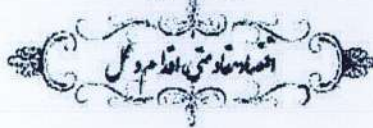 اقتصاد مقاومتی، اقدام و عمل